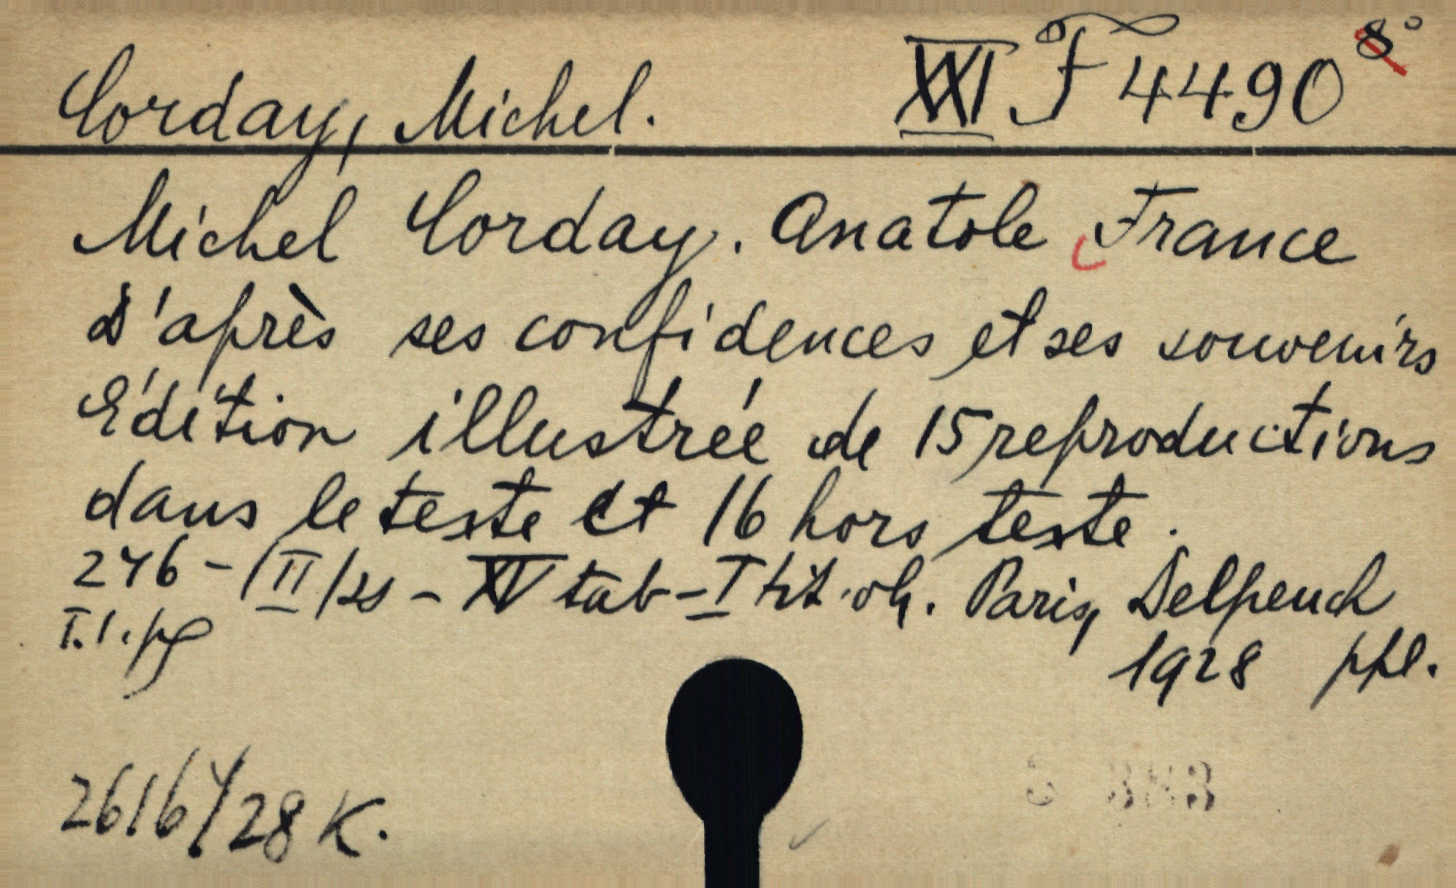 Corday, Michel. XXI F 4490 8°
Michel Corday. Anatole France
d'après ses confidences et ses souvenirs
Édition illustrée de 15 reproductions
dans le texte et 16 hors texte.
246-/II/ - XV tab-I tit. Paris, Delpeuch
1928 ppl.
/28 K.